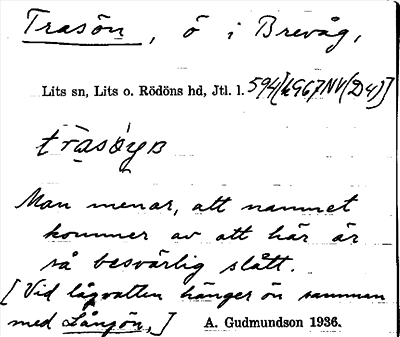 Trasön, ö i Brevåg,
Lits sn, Lits o. Rödöns hd, Jtl. l. 594[
trasöyn
Man menar, att namnet
kommer av att här är
så besvärlig slått.
[Vid lågvatten hänger ön samman
med Långön.]
A. Gudmundson 1936.